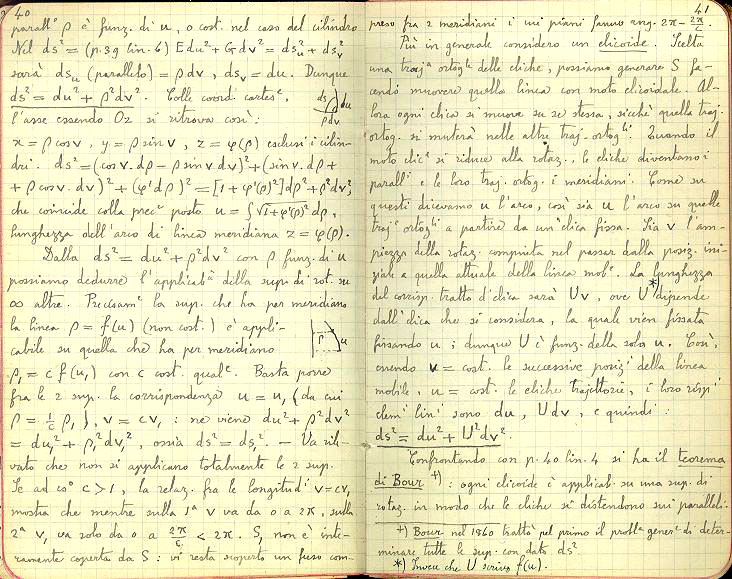 40
parall.º ρ è funz. di u, o cost. nel caso del cilindro
Nel ds² = (p. 39 lin. 6) Edu² + Gdv² = ds²ᵤ + ds²ᵥ
sarà dsᵤ (parallelo) = ρdv, dsᵥ = du. Dunque
ds² = du² + ρ²dv². Colle coord. cartesᵉ,
l'asse essendo Oz si ritrova così:
ds du
ρdv
x = ρ cosv, y = ρ sinv, z = φ(ρ) esclusi i cilin-
dri. ds² = (cosv.dρ - ρ sinv dv)² + (sinv.dρ +
+ ρ cosv.dv)² + (φ'dρ)² = [1 + φ'(ρ)²]dρ² + ρ²dv²,
che coincide colla precᵉ posto u = ∫√1+φ'(ρ)² dρ,
lunghezza dell'arco di linea meridiana z = φ(ρ).
Dalla ds² = du² + ρ²dv² con ρ funz. di u
possiamo dedurre l'applicabᵗᵃ della sup. di rot. su
∞ altre. Precisamᵉ la sup. che ha per meridiano
la linea ρ = f(u) (non cost.) è appli-
cabile su quella che ha per meridiano
ρ u
ρ₁ = c f(u₁) con c cost. qualᵉ. Basta porre
fra le 2 sup. la corrispondenza u = u₁ (da cui
ρ = 1/c ρ₁), v = cv₁ : ne viene du² + ρ²dv²
= du₁² + ρ₁²dv₁², ossia ds² = ds₁². — Va rile-
vato che non si applicano totalmente le 2 sup.
Se ad esº c > 1, la relaz. fra le longitudi v = cv₁
mostra che mentre sulla 1ª v va da 0 a 2π, sulla
2ª v₁ va solo da 0 a 2π/c < 2π. S₁ non è inte-
ramente coperta da S : vi resta scoperto un fuso com-
41
preso fra 2 meridiani i cui piani fanno ang. 2π - 2π/c.
Più in generale considero un elicoide. Scelta
una trajª ortogˡᵉ delle eliche, possiamo generare S fa-
cendo muovere quella linea con moto elicoidale. Al-
lora ogni elica si muove su se stessa, sicchè quella traj.
ortog. si muterà nelle altre traj. ortogˡⁱ. Quando il
moto elicº si riduce alla rotaz., le eliche diventano i
parallⁱ e le loro traj. ortog. i meridiani. Come su
questi dicevamo u l'arco, così sia u l'arco su quelle
trajⁱᵉ ortogˡⁱ a partire da un'elica fissa. Sia v l'am-
piezza della rotaz. compiuta nel passar dalla posiz. ini-
ziale a quella attuale della linea mobᵉ. La lunghezza
del corrisp. tratto d'elica sarà Uv, ove U*) dipende
dall'elica che si considera, la quale vien fissata
fissando u ; dunque U è funz. della sola u. Così,
essendo v = cost. le successive posizⁱ della linea
mobile, u = cost. le eliche trajettorie, i loro rispⁱ
elemⁱ linⁱ sono du, Udv, e quindi :
ds² = du² + U²dv².
Confrontando con p. 40 lin. 4 si ha il teorema
di Bour +) : ogni elicoide è applicab. su una sup. di
rotaz. in modo che le eliche si distendono sui paralleli.
+) Bour nel 1860 trattò pel primo il problª generˡᵉ di deter-
minare tutte le sup. con dato ds².
*) Invece che U scrivo f(u).